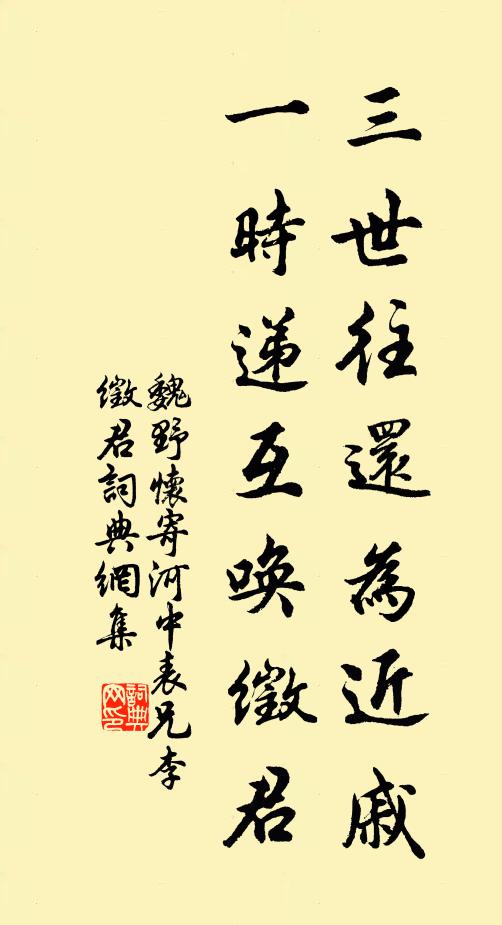 三世往還為近戚
一時递互唤徵君
魏野懷寄河中表兄李
徵君詞典網集
詞典网印